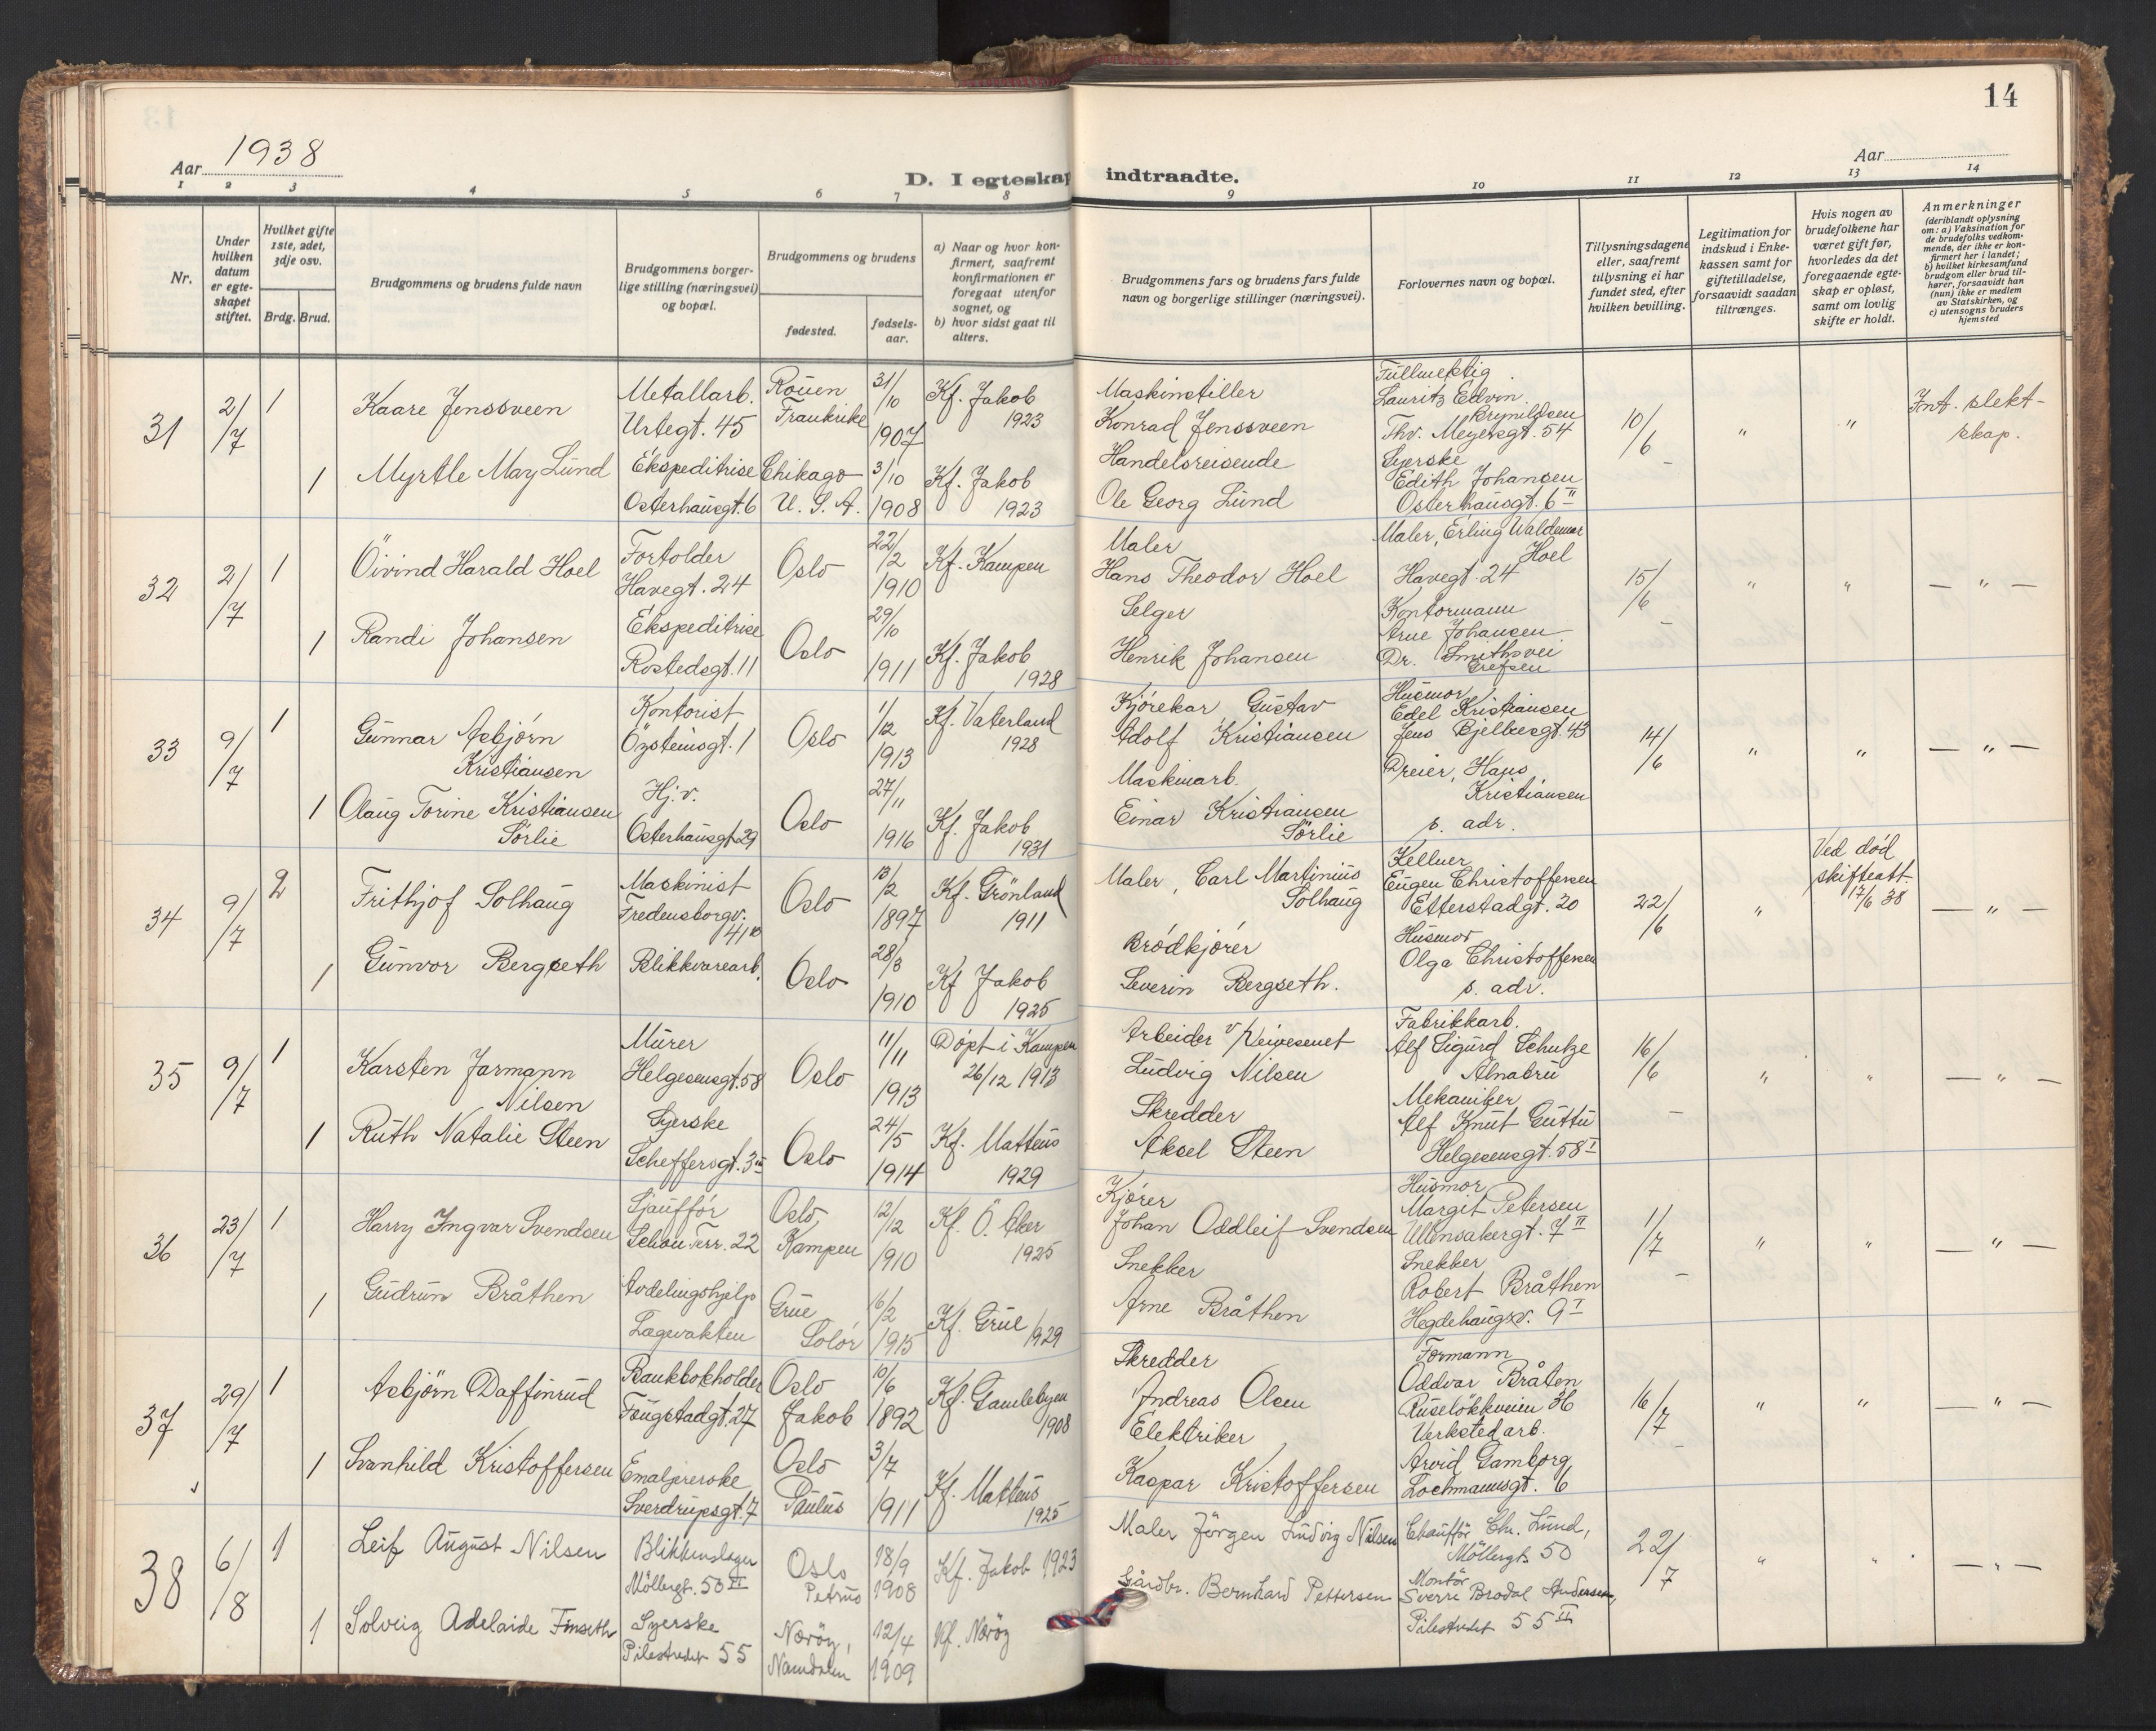 14
Aar 1938
Aar
D. I egteskap indtraadte.
1 2 3 4 5 6 7 8 9 10 11 12 13 14
Nr.
Under hvilken datum er egte-skapet stiftet.
Hvilket gifte 1ste, 2det, 3dje osv.
Brdg. Brud.
Brudgommens og brudens fulde navn
Brudgommens borger-lige stilling (næringsvei) og bopæl.
Brudgommens og brudens
fødested.
fødsels-aar.
a) Naar og hvor kon-firmert, saafremt konfirmationen er foregaat utenfor sognet, og
b) hvor sidst gaat til alters.
Brudgommens fars og brudens fars fulde navn og borgerlige stillinger (næringsvei).
Forlovernes navn og bopæl.
Tillysningsdagene eller, saafremt tillysning ei har fundet sted, efter hvilken bevilling.
Legitimation for indskud i Enke-kassen samt for giftetilladelse, forsaavidt saadan tiltrænges.
Hvis nogen av brudefolkene har været gift før, hvorledes da det foregaaende egte-skap er opløst, samt om lovlig skifte er holdt.
Anmerkninger
(deriblandt oplysning om: a) Vaksination for de brudefolks vedkom-mende, der ikke er kon-firmert her i landet; b) hvilket kirkesamfund brudgom eller brud til-hører, forsaavidt han (hun) ikke er medlem av Statskirken, og c) utensogns bruders hjemsted
31 2/7 1 Kaare Jenssveen Metallarb. Urtegt. 45 Rouen Frankrike 31/10 1907 Kf. Jakob 1923 Maskinstiller Konrad Jenssveen Fullmektig Lauritz Edvin Brynildsen Thv. Meyersgt. 54 10/6 " " Int. slekt-skap.
1 Myrtle May Lund Ekspeditrise Osterhausgt. 6 Chikago U. S. A. 3/10 1908 Kf. Jakob 1923 Handelsreisende Ole Georg Lund Syerske Edith Johansen Osterhausgt. 6 II
32 2/7 1 Öivind Harald Hoel Fortolder Havegt. 24 Oslo 22/2 1910 Kf. Kampen Maler Hans Theodor Hoel Maler, Erling Waldemar Hoel Havegt. 24 15/6 " " — " —
1 Randi Johansen Ekspeditrise Rostedsgt. 11 Oslo 29/10 1911 Kf. Jakob 1928 Selger Henrik Johansen Kontormann Arne Johansen Dr. Smithsvei Grefsen
33 9/7 1 Gunnar Asbjörn Kristiansen Kontorist Öysteinsgt. 1 Oslo 1/12 1913 Kf. Vaterland 1928 Kjørekar Gustav Adolf Kristiansen Husmor Edel Kristiansen Jens Bjelkesgt. 43 14/6 " " — " —
1 Olaug Torine Kristiansen Sörlie Hj.v. Osterhausgt. 29 Oslo 27/11 1916 Kf. Jakob 1931 Maskinarb. Einar Kristiansen Sörlie Dreier, Hans Kristiansen s. adr.
34 9/7 2 Frithjof Solhaug Maskinist Fredensborgv. 41 Oslo 13/2 1897 Kf. Grönland 1911 Maler, Carl Martinius Solhaug Kellner Eugen Christoffersen Etterstadgt. 20 22/6 " Ved død skifteatt. 17/6 38 — " —
1 Gunvor Bergseth Blikkvarearb. Oslo 28/3 1910 Kf Jakob 1925 Brödkjörer Severin Bergseth. Husmor Olga Christoffersen s. adr.
35 9/7 1 Karsten Jarmann Nilsen Murer Helgesensgt. 58 Oslo 11/11 1913 Döpt i Kampen 26/12 1913 Arbeider v/Veivesenet Ludvig Nilsen Fabrikkarb. Alf Sigurd Schulze Alnabru 16/6 " " — " —
1 Ruth Natalie Steen Syerske Scheffersgt. 3 III Oslo 24/5 1914 Kf. Matteus 1929 Skredder Aksel Steen Mekaniker Alf Knut Guttu Helgesensgt. 58 I
36 23/7 1 Harry Ingvar Svendsen Sjauffór Schou Terr. 22 Oslo, Kampen 12/12 1910 Kf. Ö. Aker 1925 Kjörer Johan Oddleif Svendsen Husmor Margit Petersen Ullensakergt. 7 II 1/7 " " — " —
1 Gudrun Bråthen Avdelingshjelp Lægevakten Grue Solör 16/2 1915 Kf. Grue 1929 Snekker Arne Bråthen Snekker Robert Bråthen Hegdehaugsv. 9 I
37 29/7 1 Asbjörn Daffinrud Bankbokholder Fougstadgt. 27 Oslo Jakob 10/6 1892 Kf. Gamlebyen 1908 Skredder Andreas Olsen Formann Oddvar Bråten Ruselökkveien 36 16/7 " " — " —
1 Svanhild Kristoffersen Emaljererske Sverdrupsgt. 7 Oslo Paulus 3/7 1911 Kf. Matteus 1925 Elektriker Kaspar Kristoffersen Verkstedarb. Arvid Gamborg Lochmannsgt. 6
38 6/8 1 Leif August Nilsen Blikkenslager Möllergt. 50 II Oslo Petrus 18/9 1908 Kf. Jakob 1923 Maler Jörgen Ludvig Nilsen Chaufför Chr. Lund, Möllergt. 50 22/7 " " — " —
1 Solveig Adelaide Finseth Syerske Pilestredet 55 Næröy, Namdalen 12/4 1909 Kf. Næröy Gårdbr. Bernhard Pettersen Montör Sverre Brodal Andersen, Pilestredet 55 II